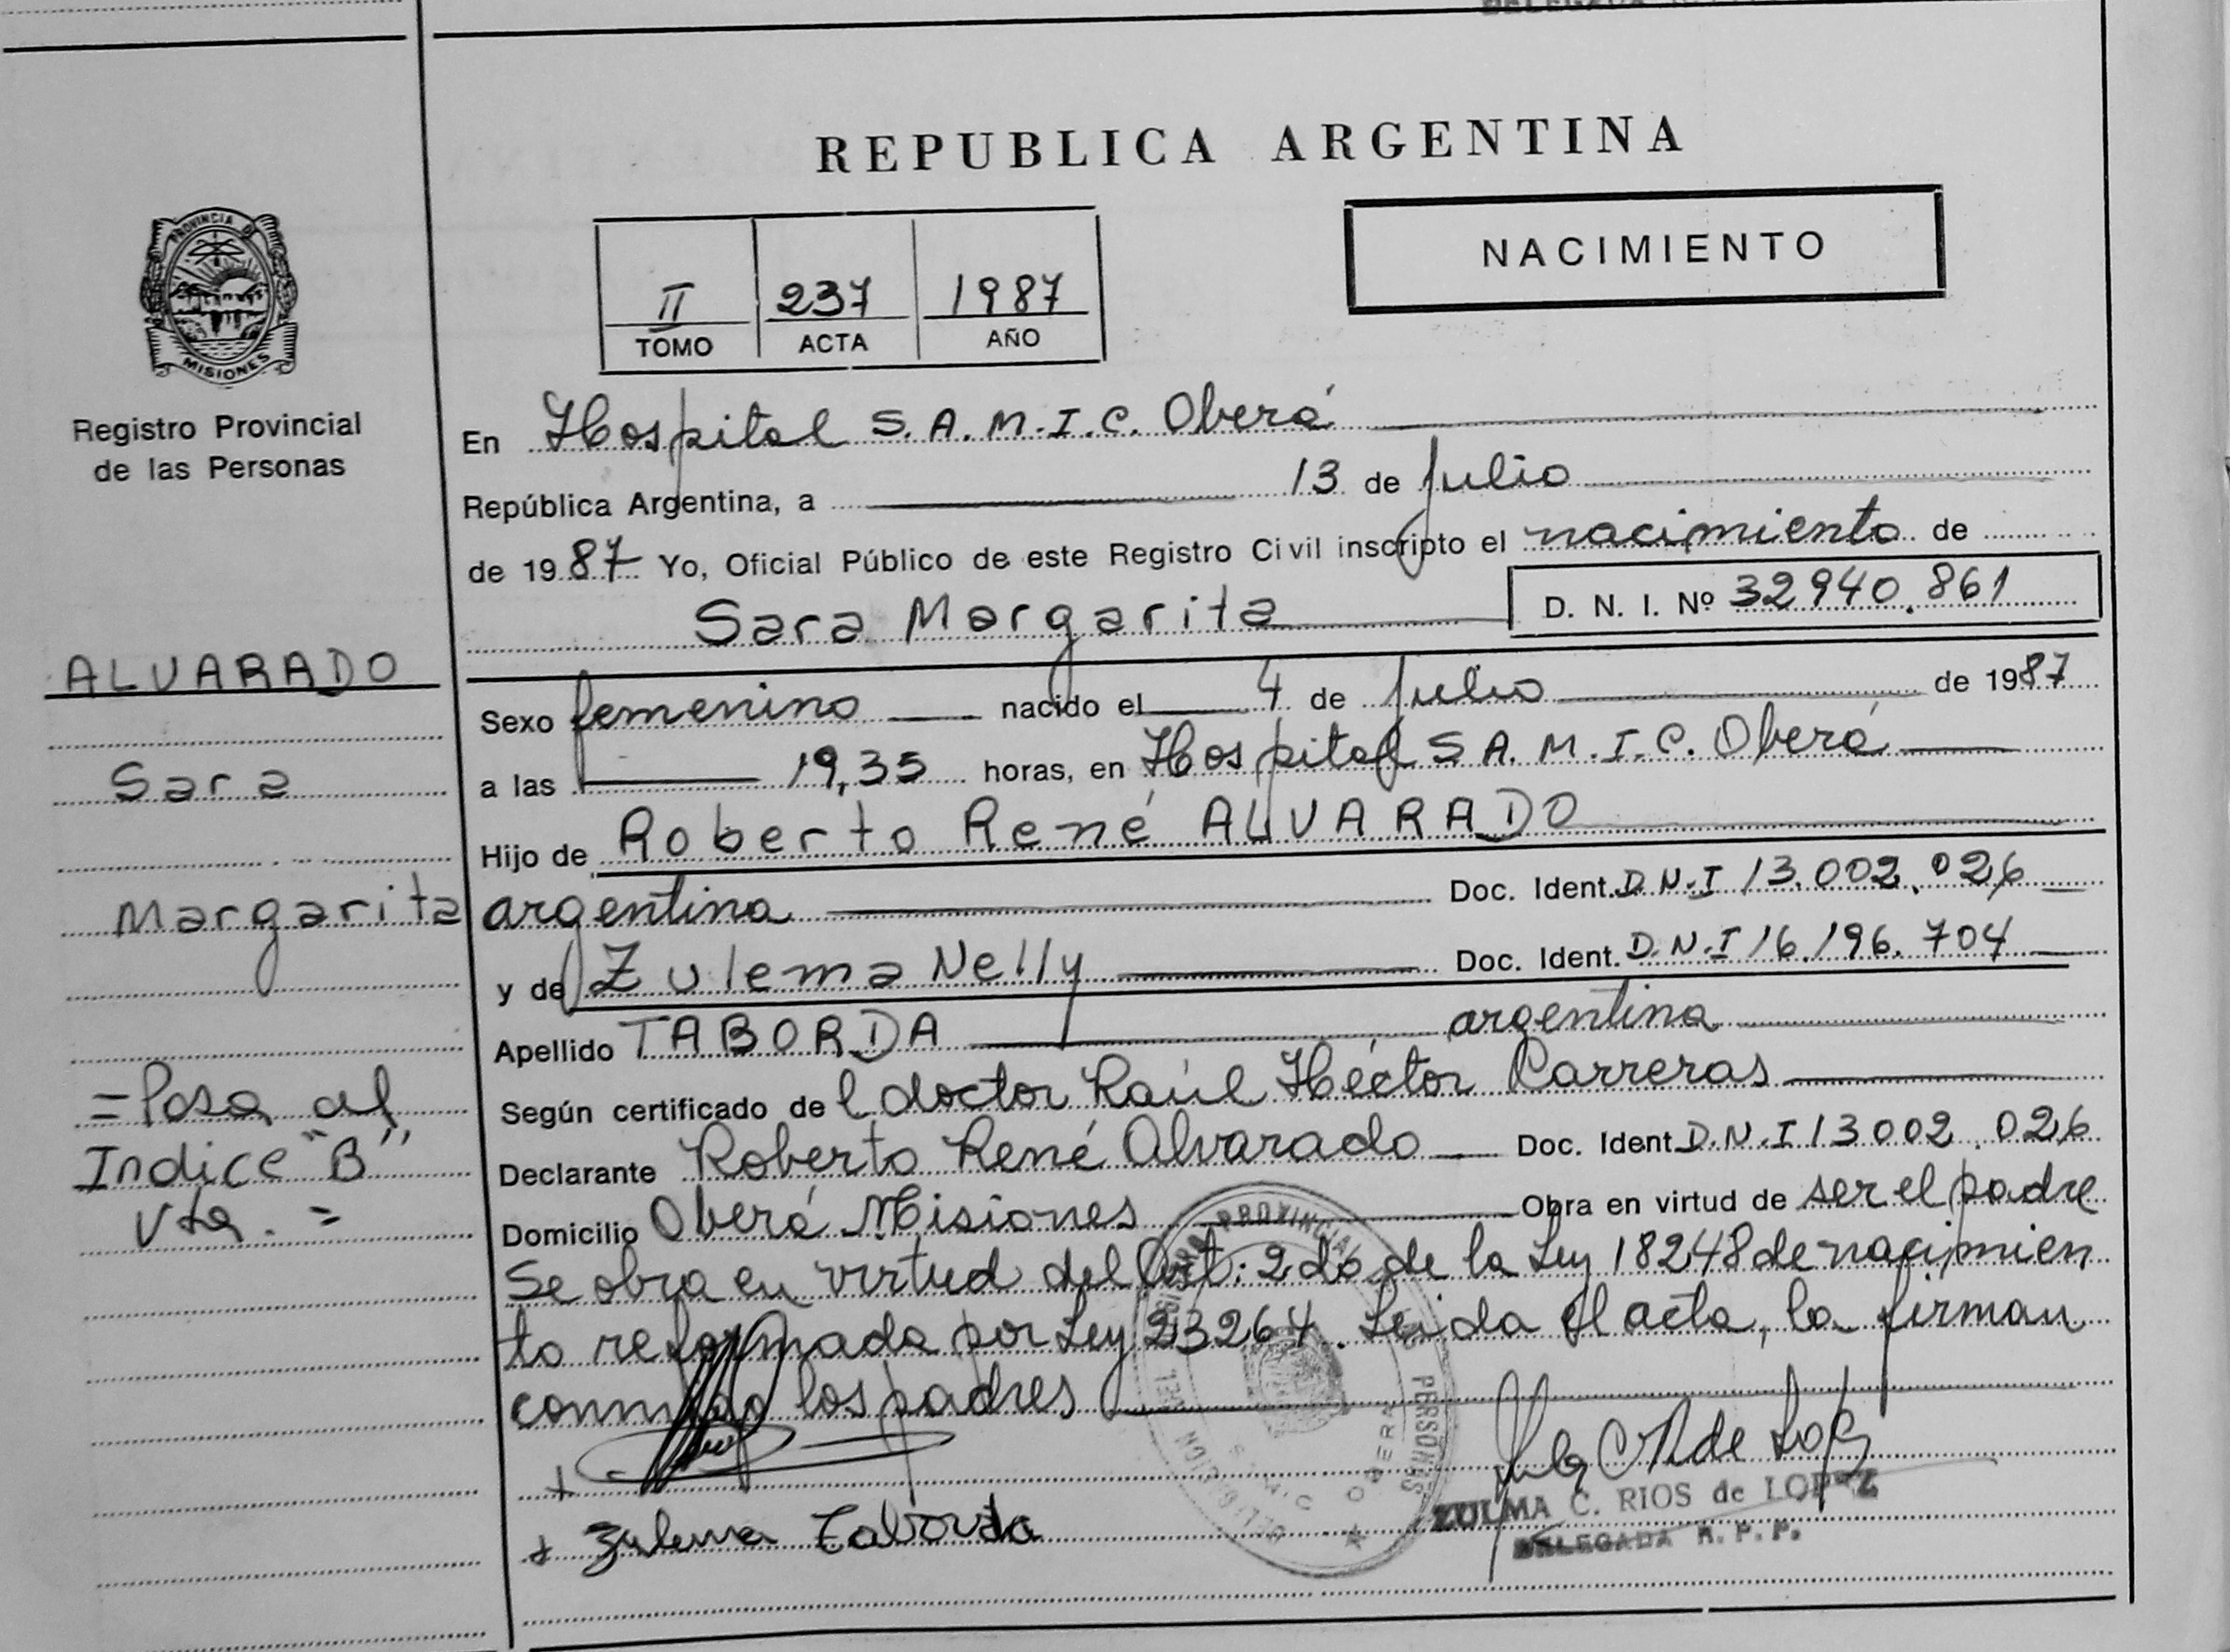 REPUBLICA ARGENTINA
NACIMIENTO
II 237 1987
TOMO ACTA AÑO
PROVINCIA D
MISIONES
Registro Provincial
de las Personas
ALVARADO
Sara
Margarita
= Pasa al
Indice "B"
Vta. =
En Hospital S.A.M.I.C. Oberá
República Argentina, a 13 de julio
de 1987 Yo, Oficial Público de este Registro Civil inscripto el nacimiento de
Sara Margarita D. N. I. Nº 32940.861
Sexo femenino nacido el 4 de julio de 1987
a las 19,35 horas, en Hospital S A. M. I. C. Oberá
Hijo de Roberto René ALVARADO
argentina Doc. Ident. D.N.I 13.002.026
y de Zulema Nelly Doc. Ident. D.N.I 16.196.704
Apellido TABORDA argentina
Según certificado de l doctor Raúl Héctor Carreras
Declarante Roberto René Alvarado Doc. Ident. D.N.I 13002.026
Domicilio Oberá Misiones Obra en virtud de ser el padre
Se obra en virtud del Art: 2do de la Ley 18248 de nacimien
to reformada por Ley 23264. Leida el acta, la firman
conmigo los padres
+
+ Zulema Taborda
ZULMA C. RIOS de LOPEZ
DELEGADA R. P. P.
PROVINCIAL
PERSONAS
DELEGACION
OBERA